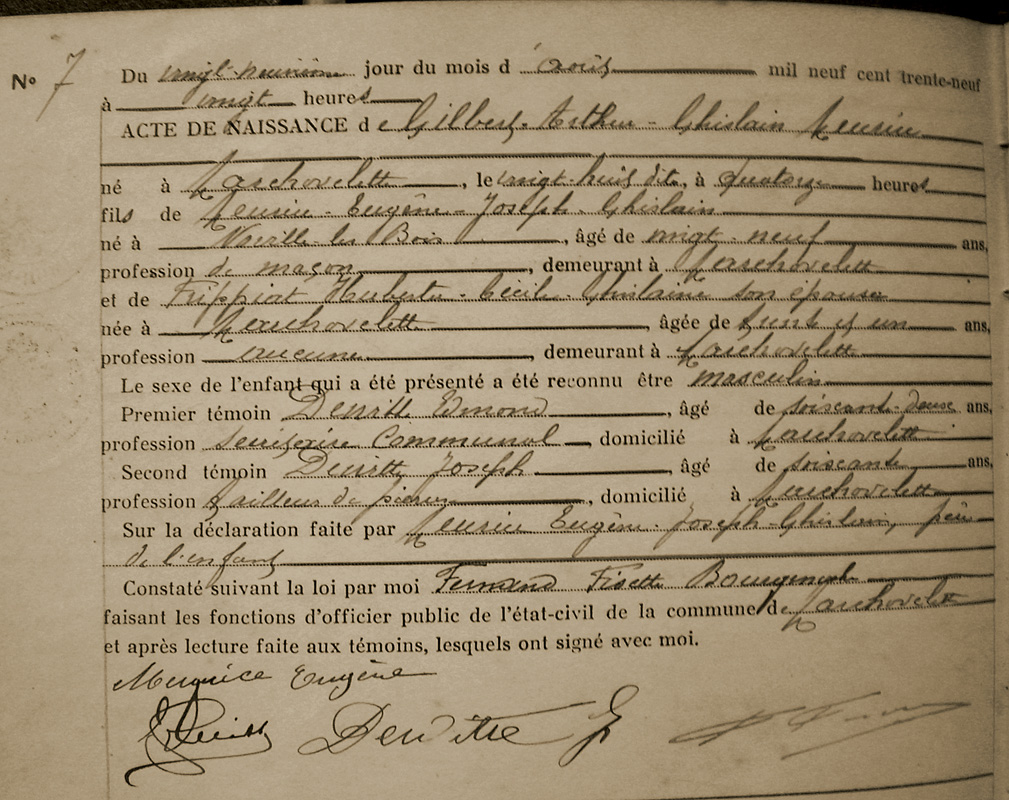 N° 7
Du vingt-neuvième jour du mois d'août mil neuf cent trente-neuf
à vingt heures
ACTE DE NAISSANCE de Gilbert - Arthur - Ghislain
né à Marchovelette, le vingt-huit dito, à quatorze heures
fils de Eugène - Joseph - Ghislain
né à Naville les Bois, âgé de vingt-neuf ans,
profession de maçon, demeurant à Marchovelette
et de Frippiat Huberte - Cécile - Ghilaine son épouse
née à Marchovelette âgée de trente et un ans,
profession aucune, demeurant à Marchovelette
Le sexe de l'enfant qui a été présenté a été reconnu être masculin
Premier témoin Edmond, âgé de soixante-douze ans,
profession secrétaire Communal, domicilié à Marchovelette
Second témoin Joseph, âgé de soixante ans,
profession tailleur de pierres, domicilié à Marchovelette
Sur la déclaration faite par Eugène - Joseph - Ghislain, père
de l'enfant
Constaté suivant la loi par moi Fernand Bourgmestre
faisant les fonctions d'officier public de l'état-civil de la commune de Marchovelette
et après lecture faite aux témoins, lesquels ont signé avec moi.
Eugène